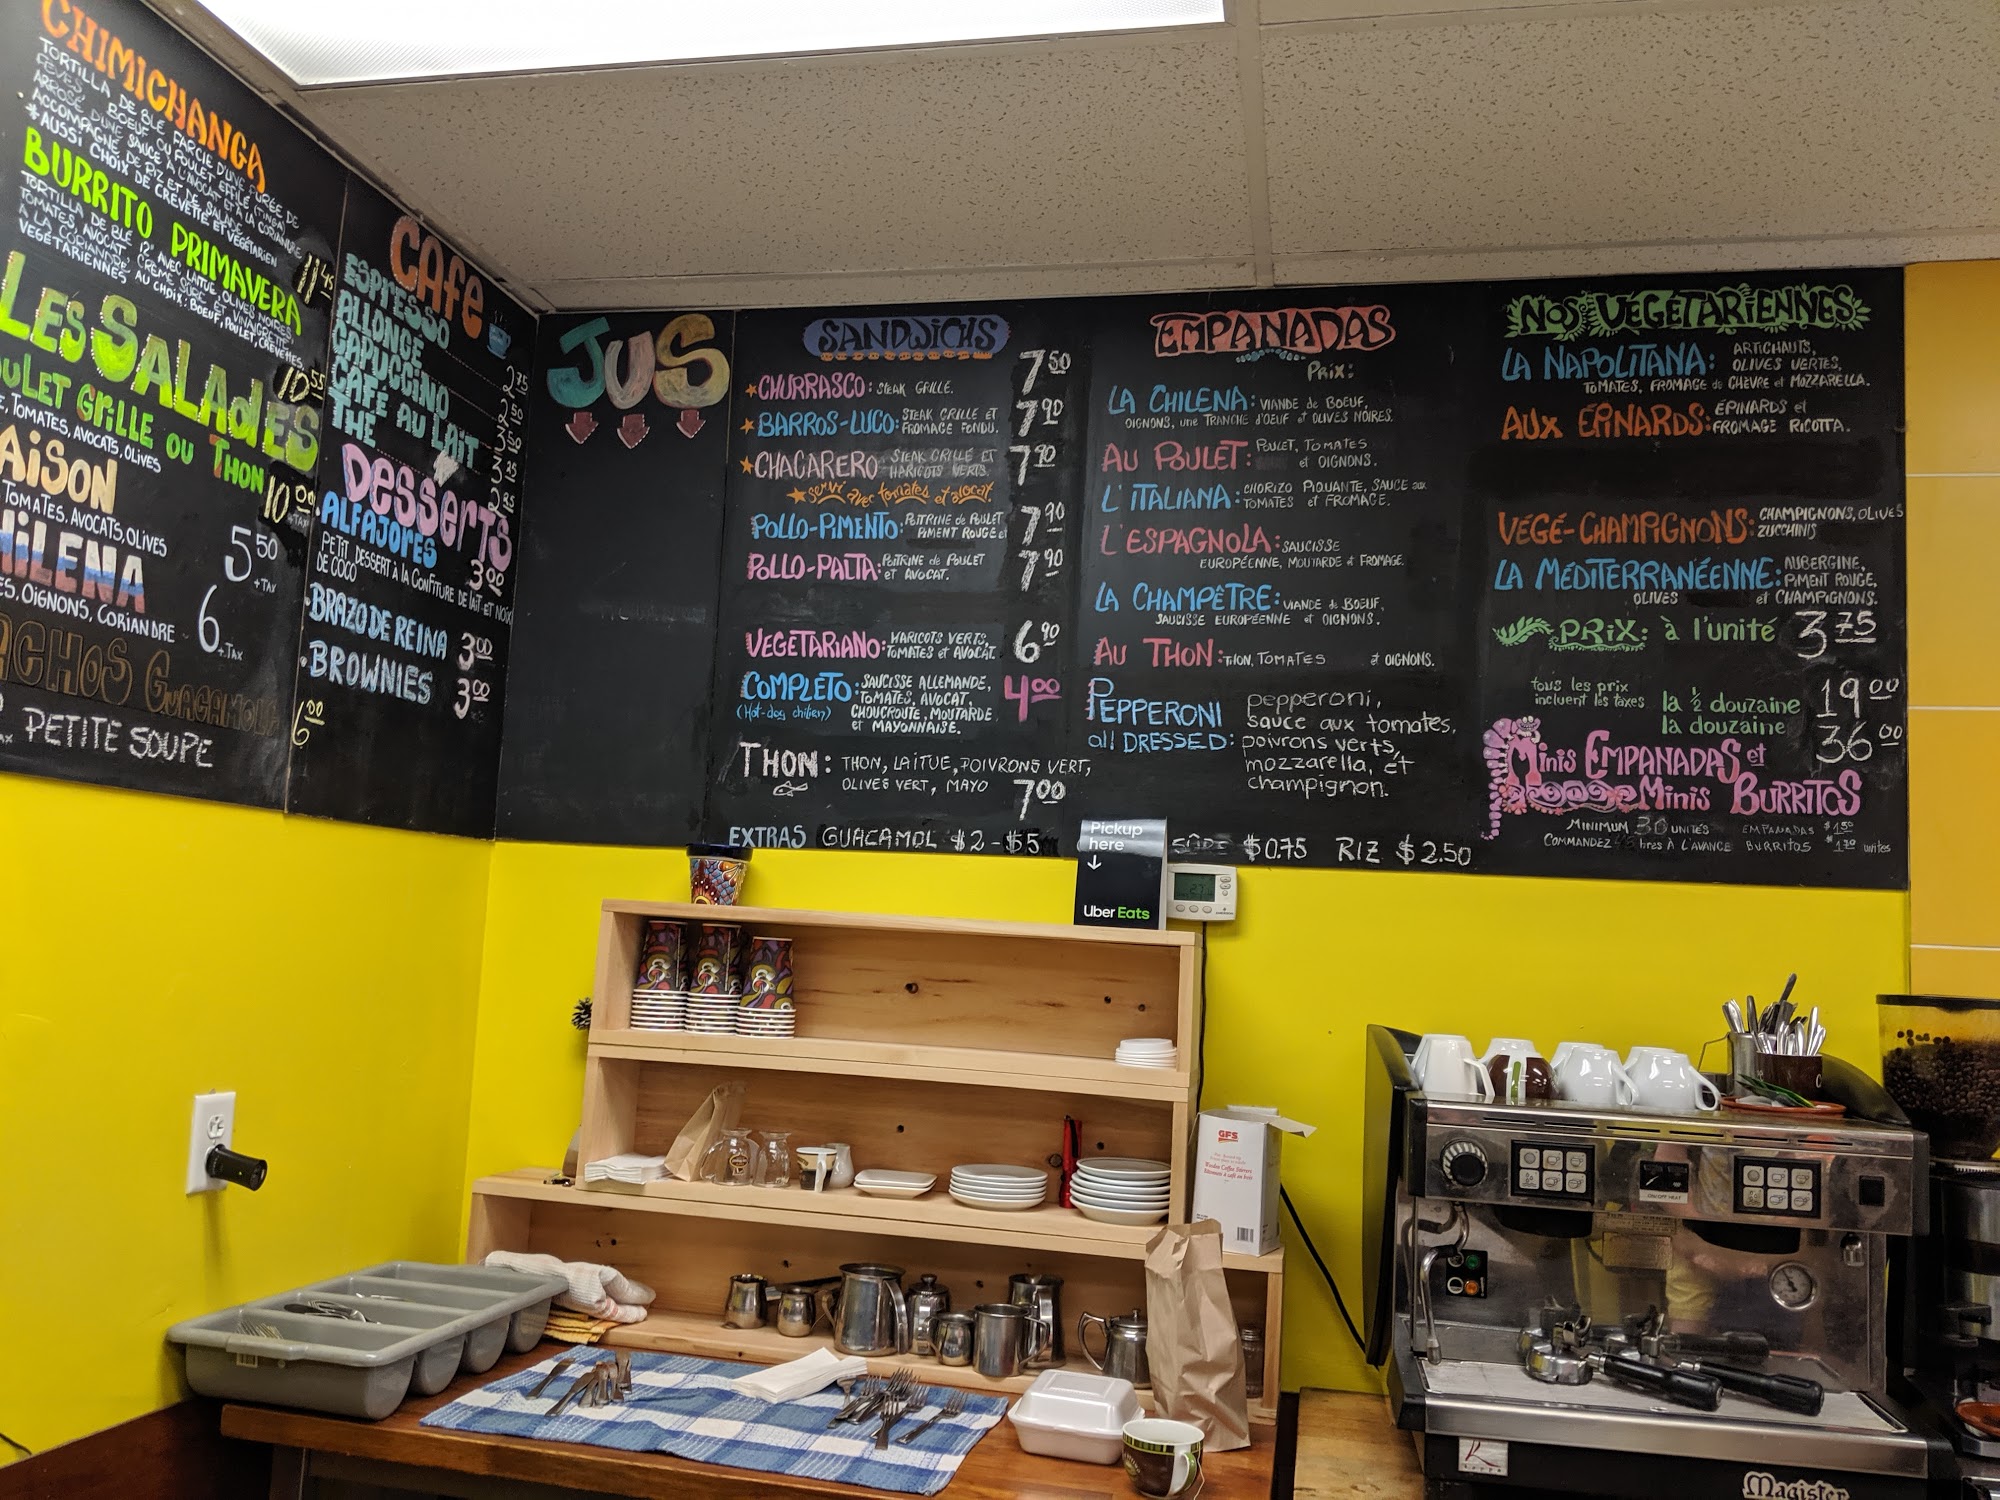 CHIMICHANGA
TORTILLA DE BLÉ FARCIE D'UNE PURÉE DE
FÈVES BOEUF OU POULET EFFILÉ (TINGA)
ARROSÉ D'UNE SAUCE À L'AVOCAT ET À LA CORIANDRE
ACCOMPAGNÉ DE RIZ ET DE SALADE
*AUSSI CHOIX DE CREVETTE ET VÉGÉTARIEN
11 45
BURRITO PRIMAVERA
TORTILLA DE BLÉ 12" AVEC LAITUE, OLIVES NOIRES,
TOMATES, AVOCAT, CRÈME SÛRE ET VINAIGRETTE
À LA CORIANDRE AU CHOIX: BOEUF, POULET, CREVETTES,
VEGÉTARIENNES
10 55
LES SALADES
OULET GRILLE OU THON
, TOMATES, AVOCATS, OLIVES
10 00
+TAX
AISON
TOMATES, AVOCATS, OLIVES
5 50
+TAX
HILENA
ES, OIGNONS, CORIANDRE
6
+TAX
ACHOS GUACAMOLE
6 00
PETITE SOUPE
CAFE
ESPRESSO
ALLONGÉ
CAPUCCINO
CAFÉ AU LAIT
THE
DESSERTS
ALFAJORES
3 00
PETIT DESSERT À LA CONFITURE DE LAIT ET NOIX
DE COCO
BRAZO DE REINA 3 00
BROWNIES 3 00
JUS
SANDWICHS
CHURRASCO: STEAK GRILLÉ. 7 50
BARROS-LUCO: STEAK GRILLÉ ET
FROMAGE FONDU. 7 90
CHACARERO STEAK GRILLÉ ET
HARICOTS VERTS. 7 90
servi avec tomates et avocat.
POLLO-PIMENTO: POITRINE de POULET
PIMENT ROUGE et 7 90
POLLO-PALTA: POITRINE de POULET
ET AVOCAT. 7 90
VEGETARIANO: HARICOTS VERTS,
TOMATES et AVOCAT. 6 90
COMPLETO: SAUCISSE ALLEMANDE,
TOMATES, AVOCAT, 4 00
(Hot-dog chilien) CHOUCROUTE, MOUTARDE
et MAYONNAISE.
THON: THON, LAITUE, POIVRONS VERT,
OLIVES VERT, MAYO 7 00
EXTRAS GUACAMOL $2 - $5
SÛRE $0.75 RIZ $2.50
EMPANADAS
PRIX:
LA CHILENA: VIANDE de BOEUF,
OIGNONS, une TRANCHE D'OEUF et OLIVES NOIRES.
AU POULET: POULET, TOMATES
et OIGNONS.
L'ITALIANA: CHORIZO PIQUANTE, SAUCE aux
TOMATES et FROMAGE.
L'ESPAGNOLA: SAUCISSE
EUROPÉENNE, MOUTARDE et FROMAGE.
LA CHAMPÊTRE: VIANDE de BOEUF,
SAUCISSE EUROPÉENNE et OIGNONS.
AU THON: THON, TOMATES et OIGNONS.
PEPPERONI
all DRESSED:
pepperoni,
sauce aux tomates,
poivrons verts,
mozzarella, et
champignon.
NOS VÉGÉTARIENNES
LA NAPOLITANA: ARTICHAUTS,
OLIVES VERTES,
TOMATES, FROMAGE de CHÈVRE et MOZZARELLA.
AUX ÉPINARDS: ÉPINARDS et
FROMAGE RICOTTA.
VÉGÉ-CHAMPIGNONS: CHAMPIGNONS, OLIVES
ZUCCHINIS
LA MÉDITERRANÉENNE: AUBERGINE,
PIMENT ROUGE,
OLIVES et CHAMPIGNONS.
PRIX: à l'unité 3 75
tous les prix
incluent les taxes
la ½ douzaine 19 00
la douzaine 36 00
Minis EMPANADAS et
Minis BURRITOS
MINIMUM 30 UNITÉS EMPANADAS $1.50
COMMANDEZ hres À L'AVANCE BURRITOS $1.70 unités
Pickup
here
Uber Eats
GFS
Magister